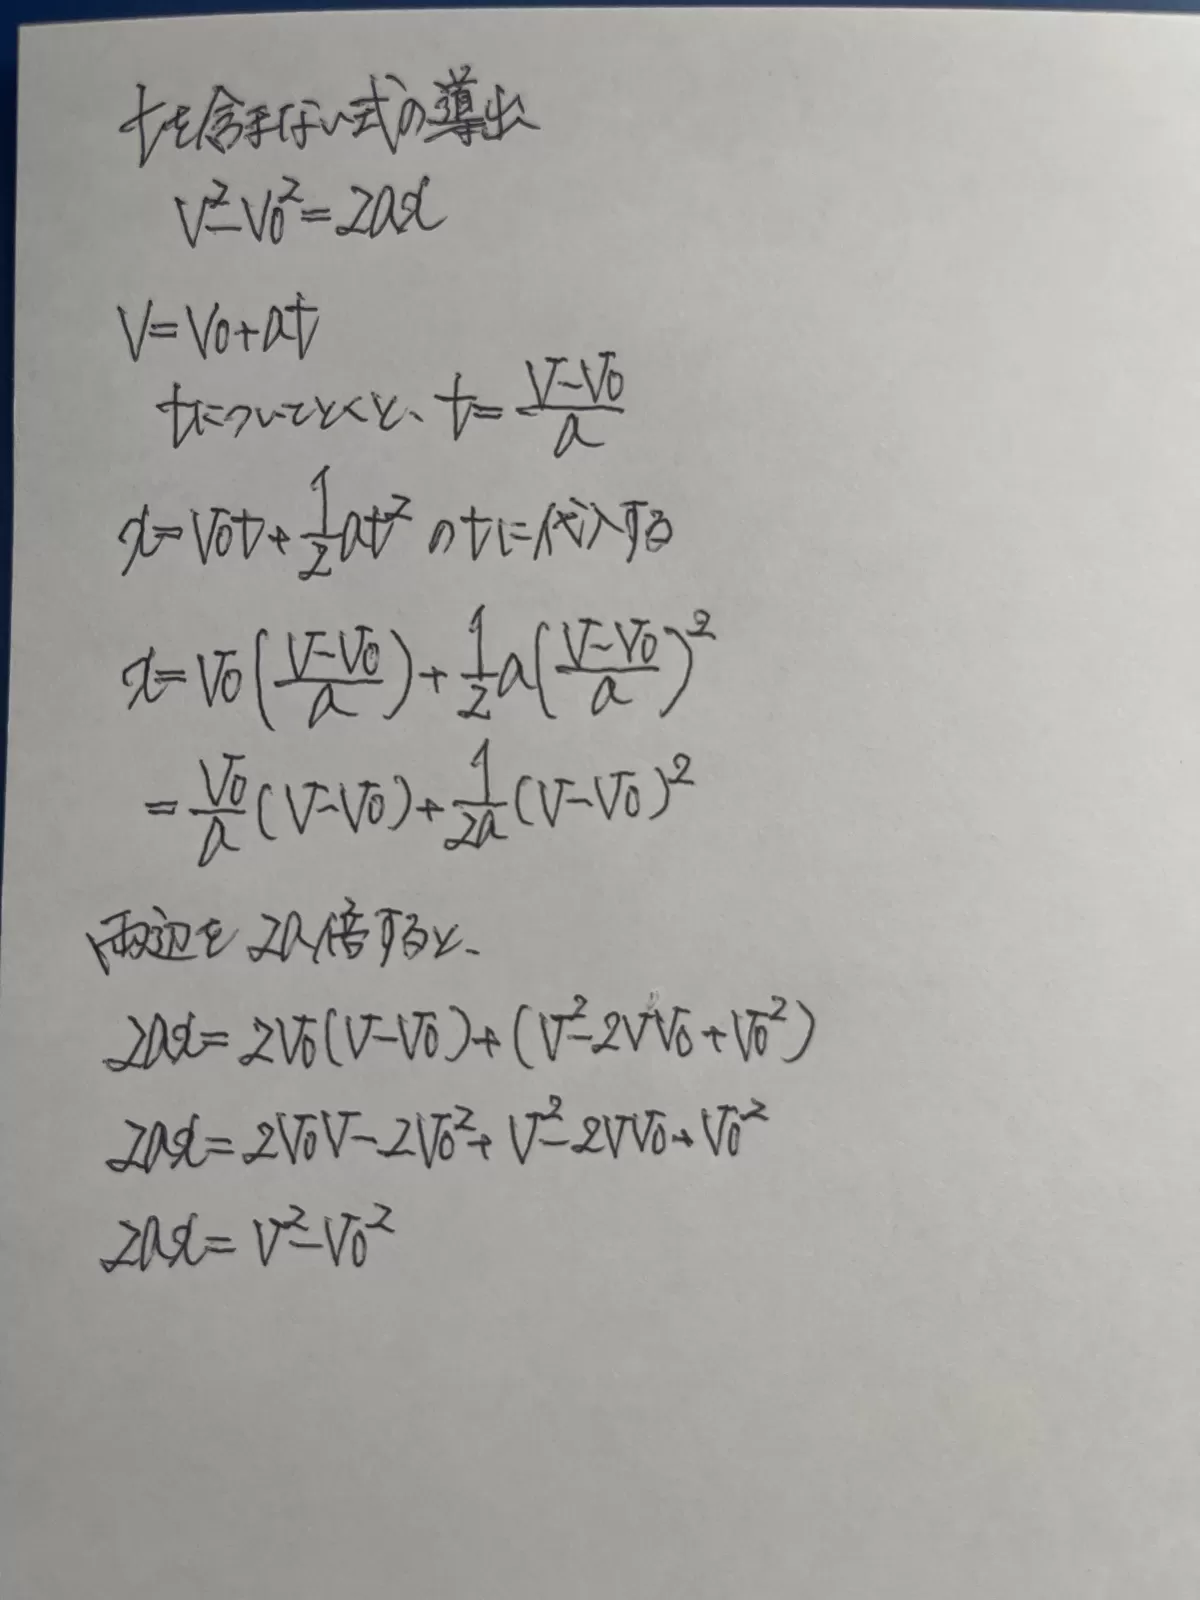 tを含まない式の導出
V²-V₀²=2ax
V=V₀+at
tについてとくと、t=(V-V₀)/a
x=V₀t+1/2at² のtに代入する
x=V₀((V-V₀)/a)+1/2a((V-V₀)/a)²
=V₀/a(V-V₀)+1/2a(V-V₀)²
両辺を2a倍すると、
2ax=2V₀(V-V₀)+(V²-2VV₀+V₀²)
2ax=2V₀V-2V₀²+V²-2VV₀+V₀²
2ax=V²-V₀²